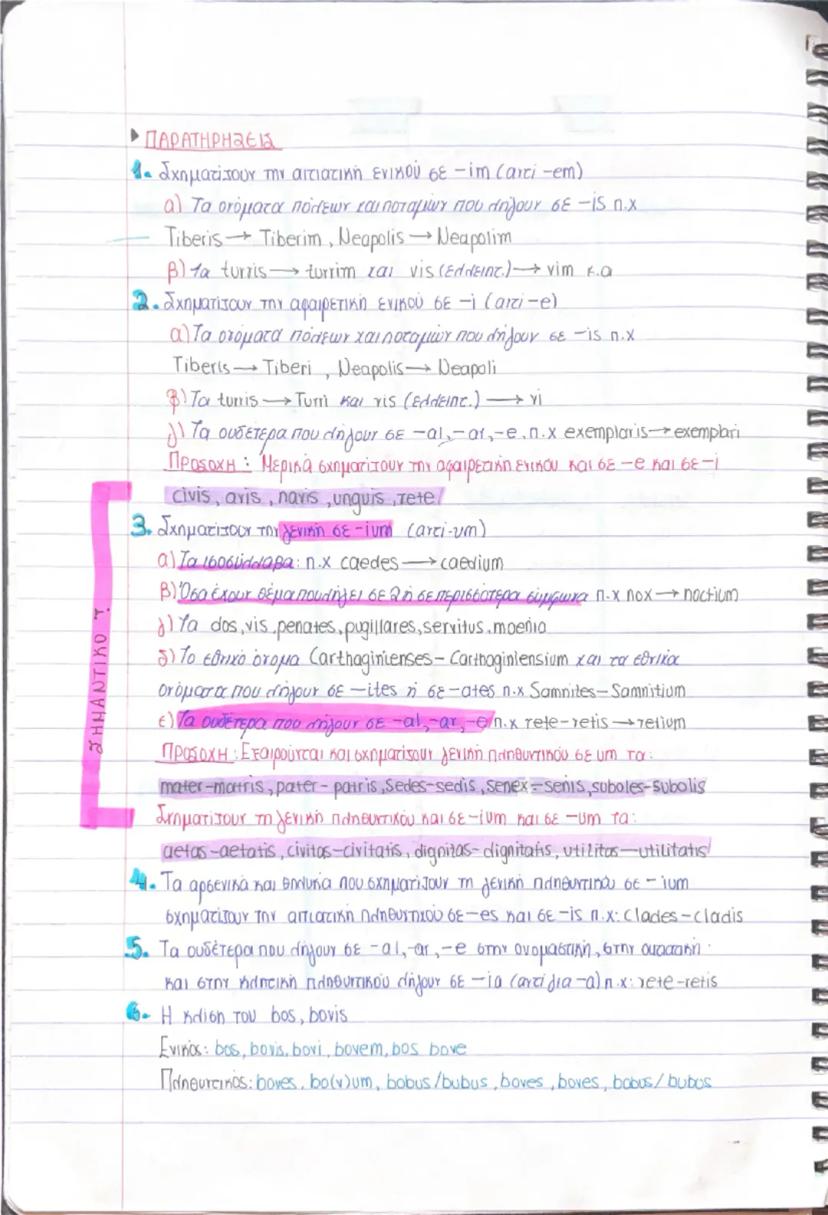 ΠΑΡΑΤΗΡΗΣΕΙΣ
1. Σχηματίζουν την αιτιατική ενικού σε -im (αντί -em)
α) Τα ονόματα πόλεων και ποταμών που λήγουν σε -is π.χ
Tiberis → Tiberim, Neapolis → Neapolim
β) Τα turris → turrim και vis (ελλειπτ.) → vim κ.α
2. Σχηματίζουν την αφαιρετική ενικού σε -i (αντί -e)
α) Τα ονόματα πόλεων και ποταμών που λήγουν σε -is π.χ
Tiberis → Tiberi, Neapolis → Neapoli
β) Τα turris → Turri και vis (ελλειπτ.) → vi
γ) Τα ουδέτερα που λήγουν σε -al, -ar, -e, π.χ exemplaris → exemplari
Προσοχή: Μερικά σχηματίζουν την αφαιρετική ενικού και σε -e και σε -i
civis, avis, navis, unguis, rete
3. Σχηματίζουν την γενική σε -ium (αντί -um)
α) Τα ισοσύλλαβα: π.χ caedes → caedium
β) Όσα έχουν θέμα που λήγει σε 2 ή σε περισσότερα σύμφωνα π.χ nox → noctium
γ) Τα dos, vis, penates, pugillares, servitus, moenia
δ) Το εθνικό όνομα Carthaginienses - Carthaginiensium και τα εθνικά
ονόματα που λήγουν σε -ites ή σε -ates π.χ Samnites - Samnitium
ε) Τα ουδέτερα που λήγουν σε -al, -ar, -e π.χ rete-retis → retium
ΣΗΜΑΝΤΙΚΟ !
Προσοχή: Εξαιρούνται και σχηματίζουν γενική πληθυντικού σε um τα:
mater-matris, pater-patris, sedes-sedis, senex-senis, suboles-subolis
Σχηματίζουν τη γενική πληθυντικού και σε -ium και σε -um τα:
aetas-aetatis, civitas-civitatis, dignitas-dignitatis, utilitas-utilitatis
4. Τα αρσενικά και θηλυκά που σχηματίζουν τη γενική πληθυντικού σε -ium
σχηματίζουν την αιτιατική πληθυντικού σε -es και σε -is π.χ: clades-cladis
5. Τα ουδέτερα που λήγουν σε -al, -ar, -e στην ονομαστική, στην αιτιατική
και στην κλητική πληθυντικού λήγουν σε -ia (αντί για -a) π.χ: rete-retis
6. Η κλίση του bos, bovis
Ενικός: bos, bovis, bovi, bovem, bos bove
Πληθυντικός: boves, bo(v)um, bobus/bubus, boves, boves, bobus/bubus